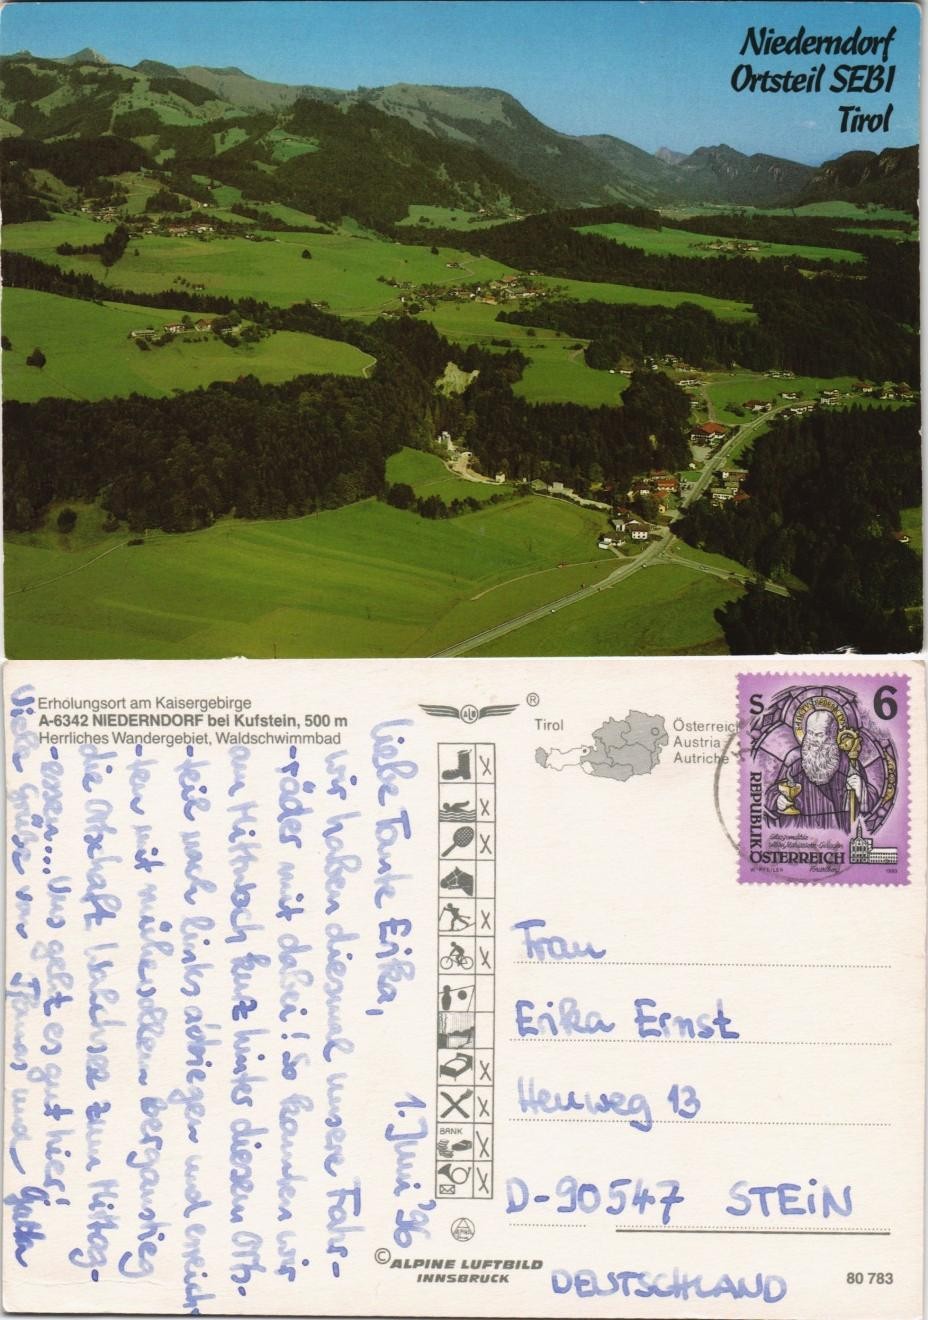 Niederndorf
Ortsteil SEBI
Tirol
Erholungsort am Kaisergebirge
A-6342 NIEDERNDORF bei Kufstein, 500 m
Herrliches Wandergebiet, Waldschwimmbad
®
ALB
Tirol
Österreich
Austria
Autriche
S 6
REPUBLIK
ÖSTERREICH
W. PFEILER
1993
BANK
1. Juni '96
Liebe Tante Erika,
wir haben diesmal unsere Fahr-
räder mit dabei! So konnten wir
am Mittwoch kurz hinter diesem Orts-
teil nach links abbiegen und erreich-
ten mit mühevollem Berganstieg
die Ortschaft Walchsee zum Mittag-
essen.... Uns geht es gut hier!
Viele Grüße von und
Frau
Erika Ernst
Heuweg 13
D-90547 STEIN
DEUTSCHLAND
© ALPINE LUFTBILD
INNSBRUCK
80 783